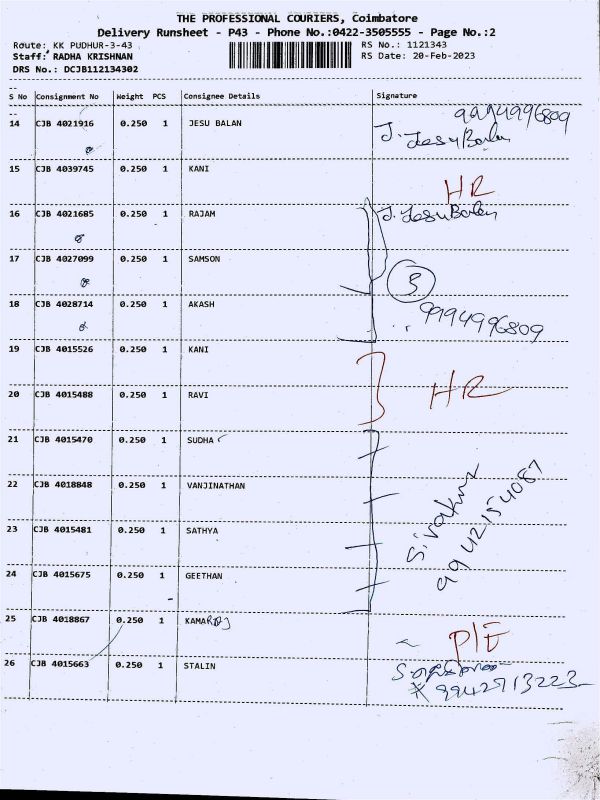 THE PROFESSIONAL COURIERS, Coimbatore
Delivery Runsheet - P43 - Phone No.:0422-3505555 - Page No.:2
Route: KK PUDHUR-3-43 RS No.: 1121343
Staff: RADHA KRISHNAN RS Date: 20-Feb-2023
DRS No.: DCJB112134302
S No Consignment No Weight PCS Consignee Details Signature
9994996809
14 CJB 4021916 0.250 1 JESU BALAN J. JesuBalan
15 CJB 4039745 0.250 1 KANI HR
16 CJB 4021685 0.250 1 RAJAM J. JesuBalan
17 CJB 4027099 0.250 1 SAMSON 3
18 CJB 4028714 0.250 1 AKASH 9994996809
19 CJB 4015526 0.250 1 KANI
20 CJB 4015488 0.250 1 RAVI HR
21 CJB 4015470 0.250 1 SUDHA
22 CJB 4018848 0.250 1 VANJINATHAN
23 CJB 4015481 0.250 1 SATHYA Sivakumar 9942154087
24 CJB 4015675 0.250 1 GEETHAN
25 CJB 4018867 0.250 1 KAMARAJ P/E
26 CJB 4015663 0.250 1 STALIN
9942913223